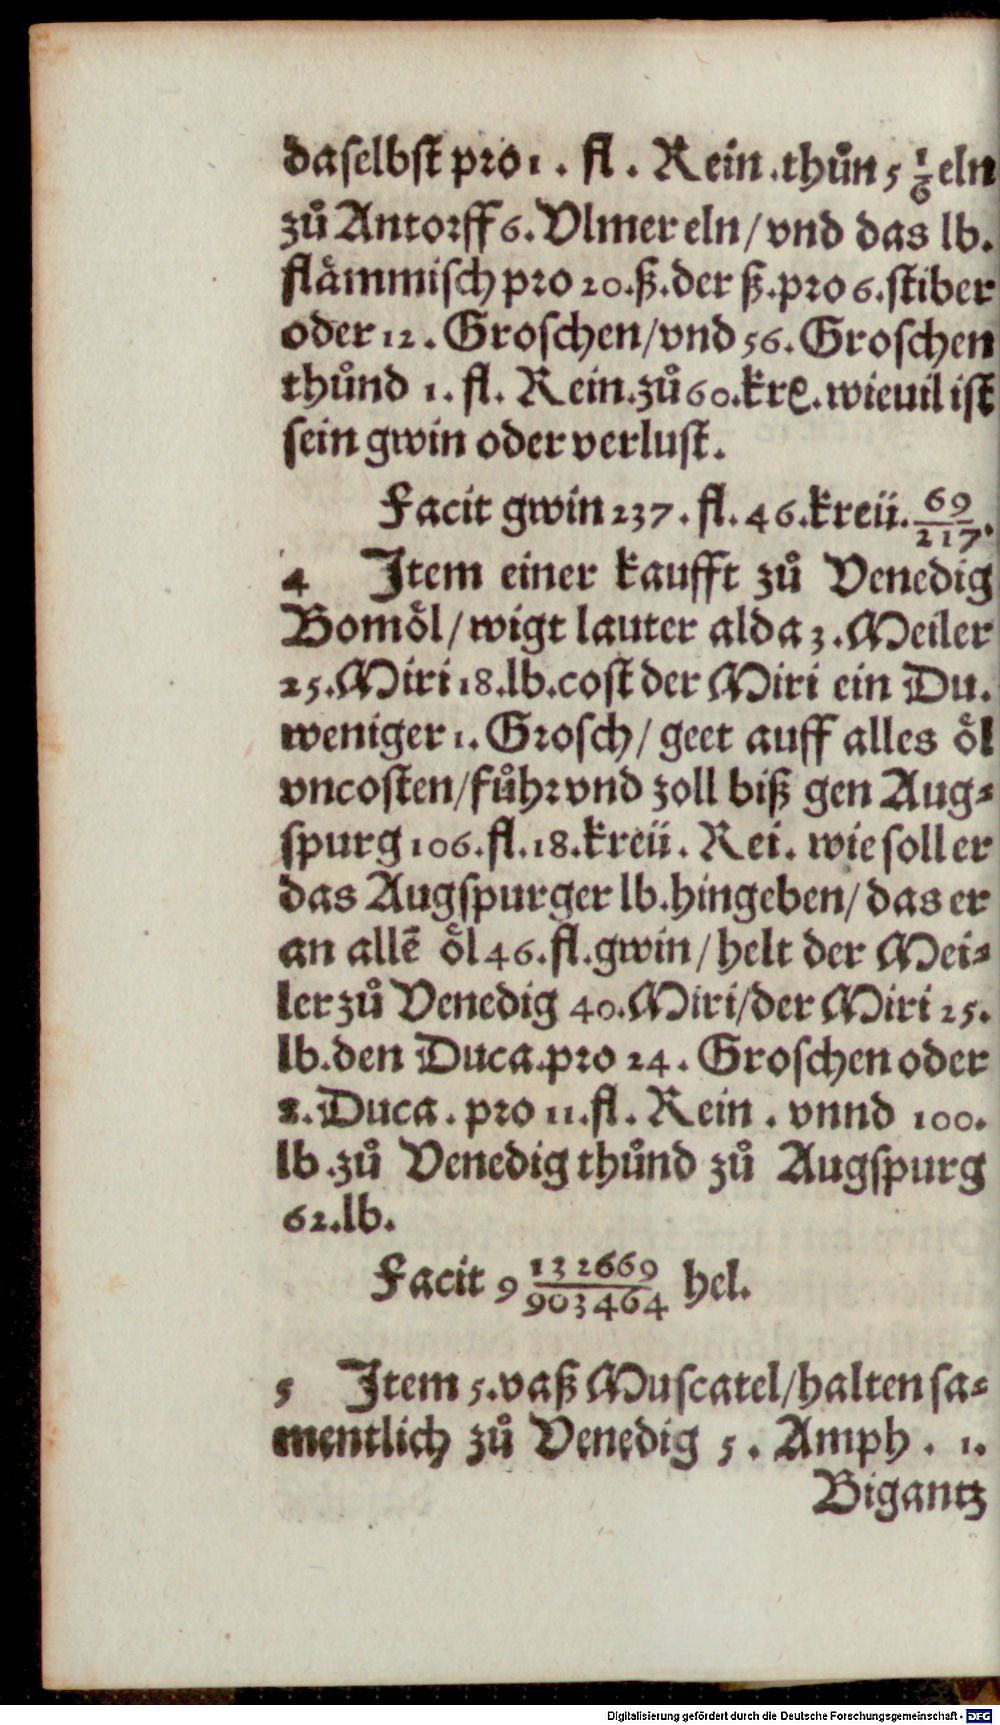 daſelbſt pro 1. fl. Rein. thuͦn 5 1/6 eln
zuͦ Antorff 6. Vlmer eln/ vnd das lb.
flaͤmmiſch pro 20. ß. der ß. pro 6. ſtiber
oder 12. Groſchen/ vnd 56. Groſchen
thuͦnd 1. fl. Rein. zuͦ 60. krꝭ. wieuil iſt
ſein gwin oder verluſt.
Facit gwin 237. fl. 46. kreü. 69/217.
4 Item einer kaufft zuͦ Venedig
Bomoͤl/ wigt lauter alda 3. Meiler
25. Miri 18. lb. coſt der Miri ein Du.
weniger 1. Groſch/ geet auff alles oͤl
vncoſten/ fuͦhr vnd zoll biß gen Aug⸗
ſpurg 106. fl. 18. kreü. Rei. wie ſoll er
das Augſpurger lb. hingeben/ das er
an allē oͤl 46. fl. gwin/ helt der Mei⸗
ler zuͦ Venedig 40. Miri/ der Miri 25.
lb. den Duca. pro 24. Groſchen oder
8. Duca. pro 11. fl. Rein. vnnd 100.
lb. zuͦ Venedig thuͦnd zuͦ Augſpurg
62. lb.
Facit 9 132669/903464 hel.
5 Item 5. vaß Muſcatel/ halten ſa⸗
mentlich zuͦ Venedig 5. Amph. 1.
Bigantz
Digitalisierung gefördert durch die Deutsche Forschungsgemeinschaft - DFG